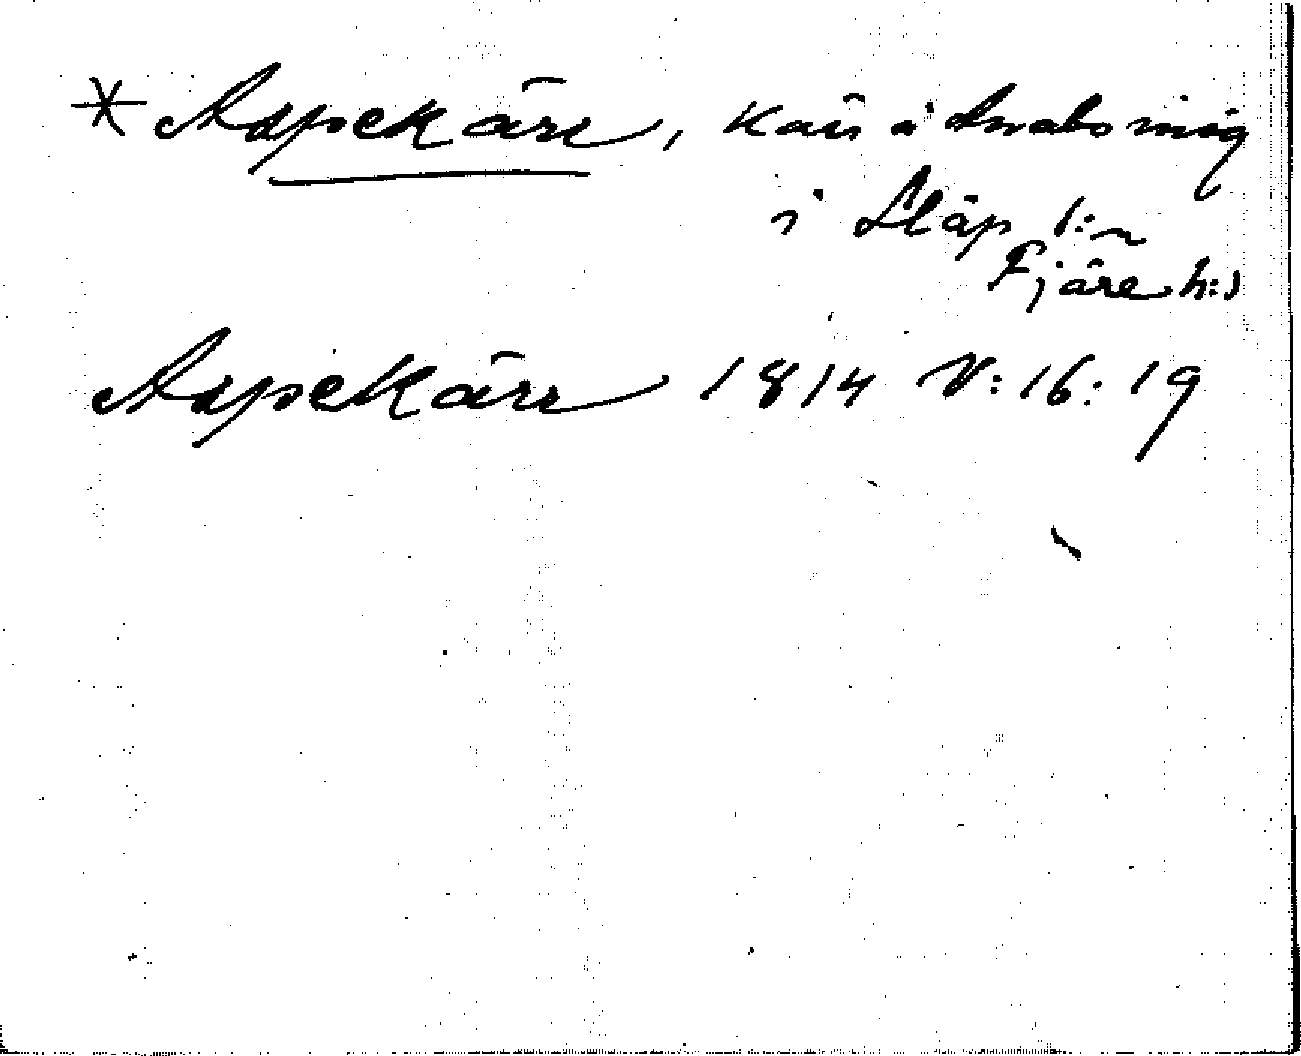 * Aspekärr, kärr i
i Släp s:n
Fjäre h:d
Aspekärr 1814 V:16:19